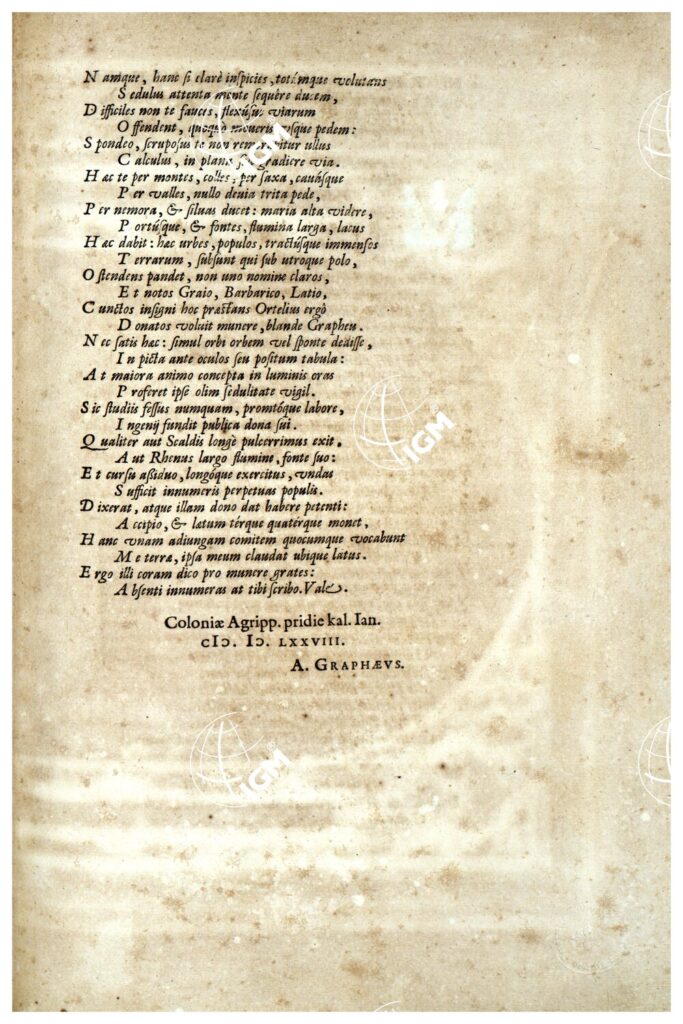 Namque, hanc si clarè inſpicies, totámque volutans
Sedulus attenta mente ſequêre ducem,
Difficiles non te fauces, flexúſue viarum
Offendent, quoquò moueris vſque pedem:
Spondeo, ſcrupoſus te non remorabitur vllus
Calculus, in plana ſed gradiere via.
Hac te per montes, colles, per ſaxa, cauáſque
Per valles, nullo deuia trita pede,
Per nemora, & ſiluas ducet: maria alta videre,
Portúſque, & fontes, flumina larga, lacus
Hac dabit: hac urbes, populos, tractúſque immenſos
Terrarum, ſubſunt qui ſub utroque polo,
Oſtendens pandet, non uno nomine claros,
Et notos Graio, Barbarico, Latio,
Cunctos inſigni hoc præſtans Ortelius ergò
Donatos voluit munere, blande Grapheu.
Nec ſatis hæc: ſimul orbi orbem vel ſponte dediſſe,
In picta ante oculos ſeu poſitum tabula:
At maiora animo concepta in luminis oras
Proferet ipſe olim ſedulitate vigil.
Sic ſtudiis feſſus numquam, promtóque labore,
Ingenij fundit publica dona ſui.
Qualiter aut Scaldis longè pulcerrimus exit,
Aut Rhenus largo flumine, fonte ſuo:
Et curſu aßiduo, longóque exercitus, vndas
Sufficit innumeris perpetuas populis.
Dixerat, atque illam dono dat habere petenti:
Accipio, & lætum térque quatérque monet,
Hanc vnam adiungam comitem quocumque vocabunt
Me terræ, ipſa meum claudat ubique latus.
Ergo illi coram dico pro munere grates:
Abſenti innumeras at tibi ſcribo. Vale.
Coloniæ Agripp. pridie kal. Ian.
cIↄ. Iↄ. LXXVIII.
A. GRAPHÆVS.
IGM
IGM
IGM